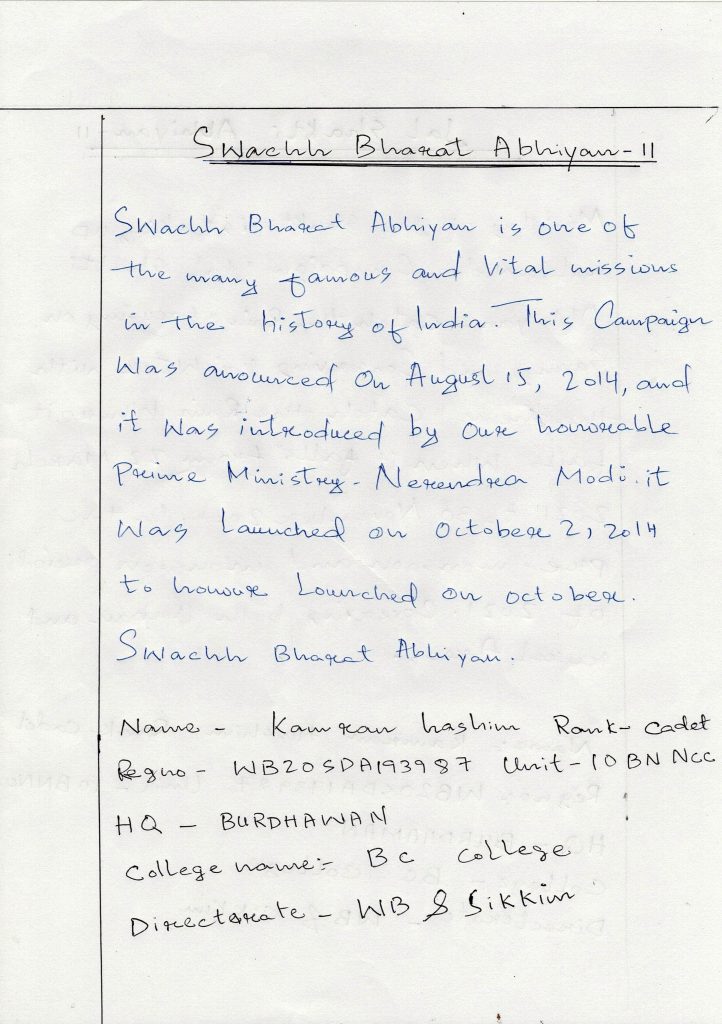 Swachh Bharat Abhiyan-11
Swachh Bharat Abhiyan is one of
the many famous and Vital missions
in the history of India. This Campaign
Was anounced On August 15, 2014, and
it Was introduced by Our honorable
Prime Ministry- Nerendra Modi. it
Was Launched on October 2, 2014
to honour Lounched on october.
Swachh Bharat Abhiyan.
Name - Kamran hashim Rank- cadet
Regno - WB20SDA193987 Unit-10 BN NCC
HQ - BURDHAWAN
College name:- Bc college
Directorate - WB & Sikkim